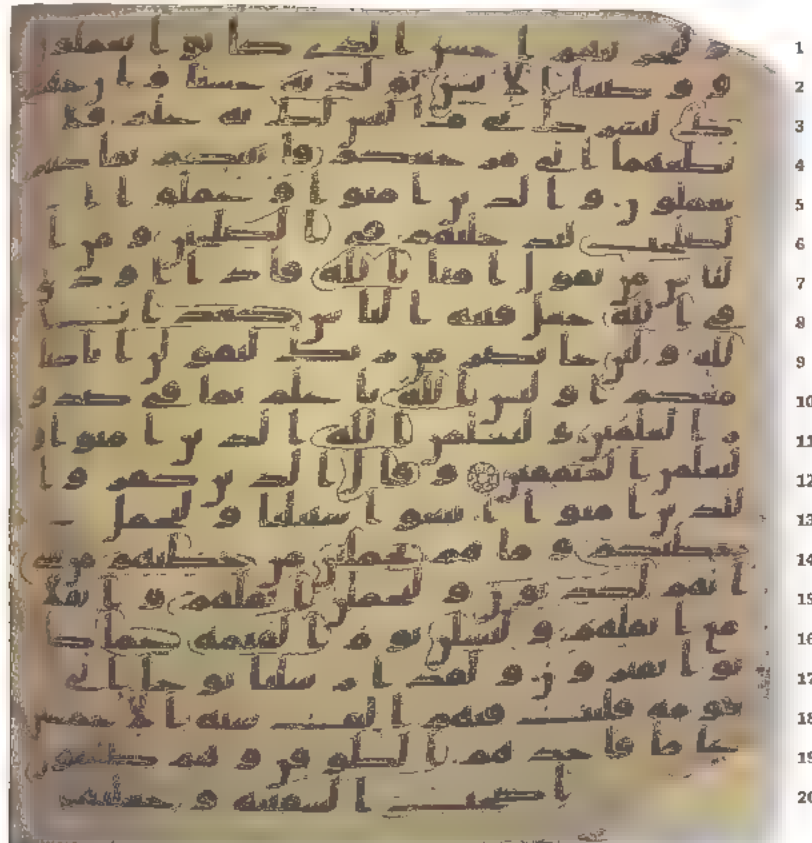 ولنجزينهم احسن الذي كانوا يعملو 1
ن ووصينا الانسن بولديه حسنا وان جهد 2
ك لتشرك بي ما ليس لك به علم فلا 3
تطعهما الي مرجعكم فانبئكم بما كنتم 4
تعملون والذين امنوا وعملوا ا 5
لصلحت لندخلنهم في الصلحين ومن ا 6
لناس من يقول امنا بالله فاذا اوذي 7
في الله جعل فتنه الناس كعذاب ا 8
لله ولئن جا نصر من ربك ليقولن انا كنا 9
معكم اوليس الله باعلم بما في صدو 10
ر العلمين وليعلمن الله الذين امنوا و 11
ليعلمن المنفقين وقال الذين كفروا 12
للذين امنوا اتبعوا سبيلنا ولنحمل 13
خطيكم وما هم بحملين من خطيهم من شي 14
انهم لكذبون وليحملن اثقلهم واثقلا 15
مع اثقلهم وليسلن يوم القيمه عما كا 16
نوا يفترون ولقد ارسلنا نوحا الى 17
قومه فلبث فيهم الف سنه الا خمسين 18
عاما فاخذهم الطوفن وهم ظلمون 19
اصحب السفينه وجعلنها 20